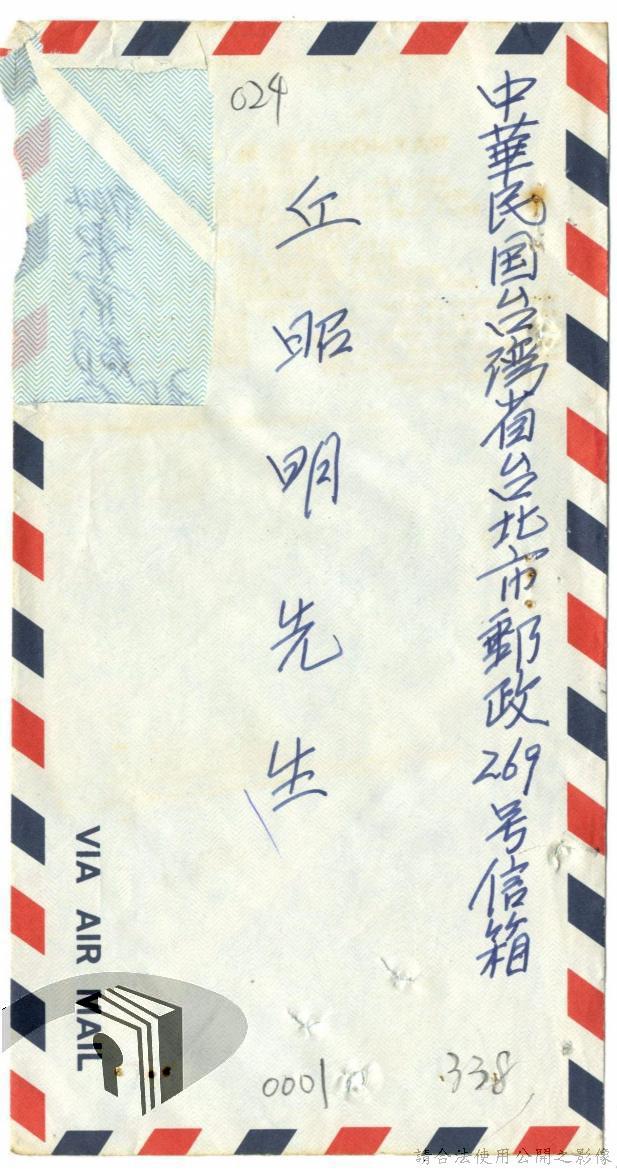 中華民国台湾省台北市郵政269号信箱
丘昭明先生
024
VIA AIR MAIL
0001
338
請合法使用公開之影像